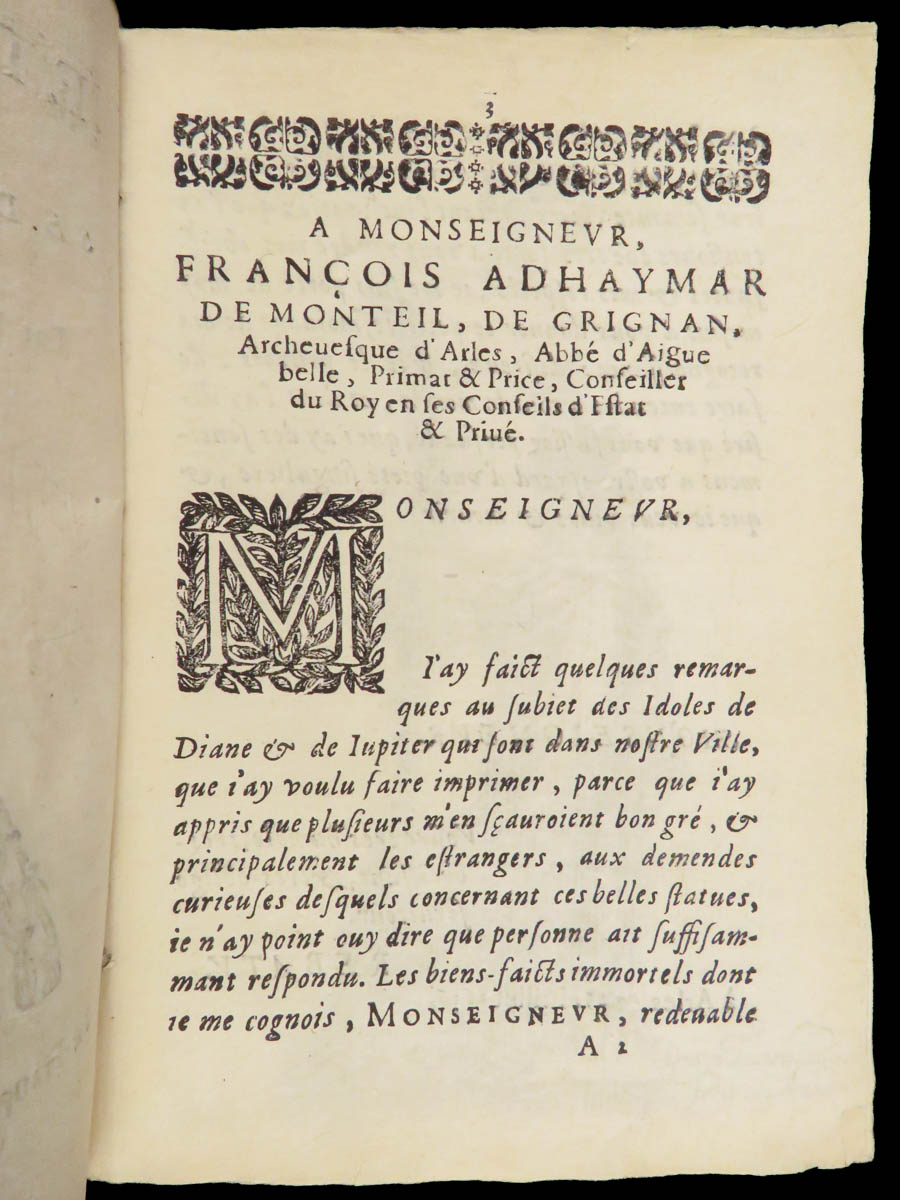 3
A MONSEIGNEVR,
FRANÇOIS ADHAYMAR
DE MONTEIL, DE GRIGNAN,
Archeueſque d'Arles, Abbé d'Aigue
belle, Primat & Price, Conſeiller
du Roy en ſes Conſeils d'Eſtat
& Priué.
MONSEIGNEVR,
I'ay faict quelques remar-
ques au ſubiet des Idoles de
Diane & de Iupiter qui ſont dans noſtre Ville,
que i'ay voulu faire imprimer, parce que i'ay
appris que pluſieurs m'en ſçauroient bon gré, &
principalement les eſtrangers, aux demendes
curieuſes deſquels concernant ces belles ſtatues,
ie n'ay point ouy dire que perſonne ait ſuffiſam-
mant reſpondu. Les biens-faicts immortels dont
ie me cognois, MONSEIGNEVR, redeuable
A 2